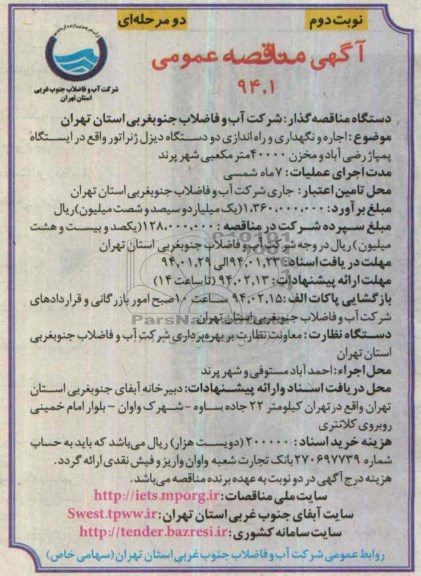 نوبت دوم
دو مرحله‌ای
شرکت آب و فاضلاب جنوب غربی
استان تهران
آگهی مناقصه عمومی
۹۴.۱
دستگاه مناقصه گذار: شرکت آب و فاضلاب جنوبغربی استان تهران
موضوع: اجاره و نگهداری و راه اندازی دو دستگاه دیزل ژنراتور واقع در ایستگاه
پمپاژ رضی آباد و مخزن ۴۰۰۰۰ متر مکعبی شهر پرند
مدت اجرای عملیات: ۷ ماه شمسی
محل تامین اعتبار: جاری شرکت آب و فاضلاب جنوبغربی استان تهران
مبلغ برآورد: ۱،۳۶۰،۰۰۰،۰۰۰ (یک میلیارد و سیصد و شصت میلیون) ریال
مبلغ سپرده شرکت در مناقصه: ۱۲۸،۰۰۰،۰۰۰ (یکصد و بیست و هشت
میلیون) ریال در وجه شرکت آب و فاضلاب جنوبغربی استان تهران
مهلت دریافت اسناد: ۹۴،۰۱،۲۳ الی ۹۴،۰۱،۲۹
مهلت ارائه پیشنهادات: ۹۴،۰۲،۱۳ (تا ساعت ۱۴)
بازگشایی پاکات الف: ۹۴،۰۲،۱۵ ساعت ۱۰ صبح امور بازرگانی و قراردادهای
شرکت آب و فاضلاب جنوبغربی استان تهران
دستگاه نظارت: معاونت نظارت بر بهره برداری شرکت آب و فاضلاب جنوبغربی
استان تهران
محل اجراء: احمد آباد مستوفی و شهر پرند
محل دریافت اسناد وارائه پیشنهادات: دبیرخانه آبفای جنوبغربی استان
تهران واقع در تهران کیلومتر ۲۲ جاده ساوه – شهرک واوان – بلوار امام خمینی
روبروی کلانتری
هزینه خرید اسناد: ۲۰۰۰۰۰ (دویست هزار) ریال می‌باشد که باید به حساب
شماره ۲۷۰۶۹۷۷۳۹ بانک تجارت شعبه واوان واریز و فیش نقدی ارائه گردد.
هزینه درج آگهی در دو نوبت به عهده برنده مناقصه می‌باشد.
سایت ملی مناقصات: http://iets.mporg.ir
سایت آبفای جنوب غربی استان تهران: Swest.tpww.ir
سایت سامانه کشوری: http://tender.bazresi.ir
روابط عمومی شرکت آب و فاضلاب جنوب غربی استان تهران (سهامی خاص)